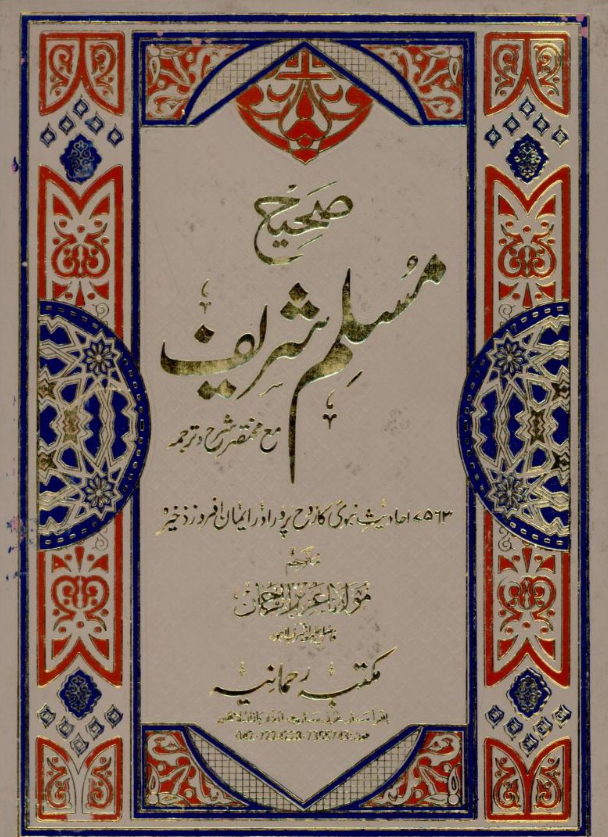 صَحِیْح
مُسلِم شریف
مع مختصر شرح و ترجمہ
۷۵۶۳ احادیثِ نبوی کا رُوح پرور اور ایمان افروز ذخیرہ
مترجم
مولانا عزیز الرحمٰن
مکتبہ رحمانیہ